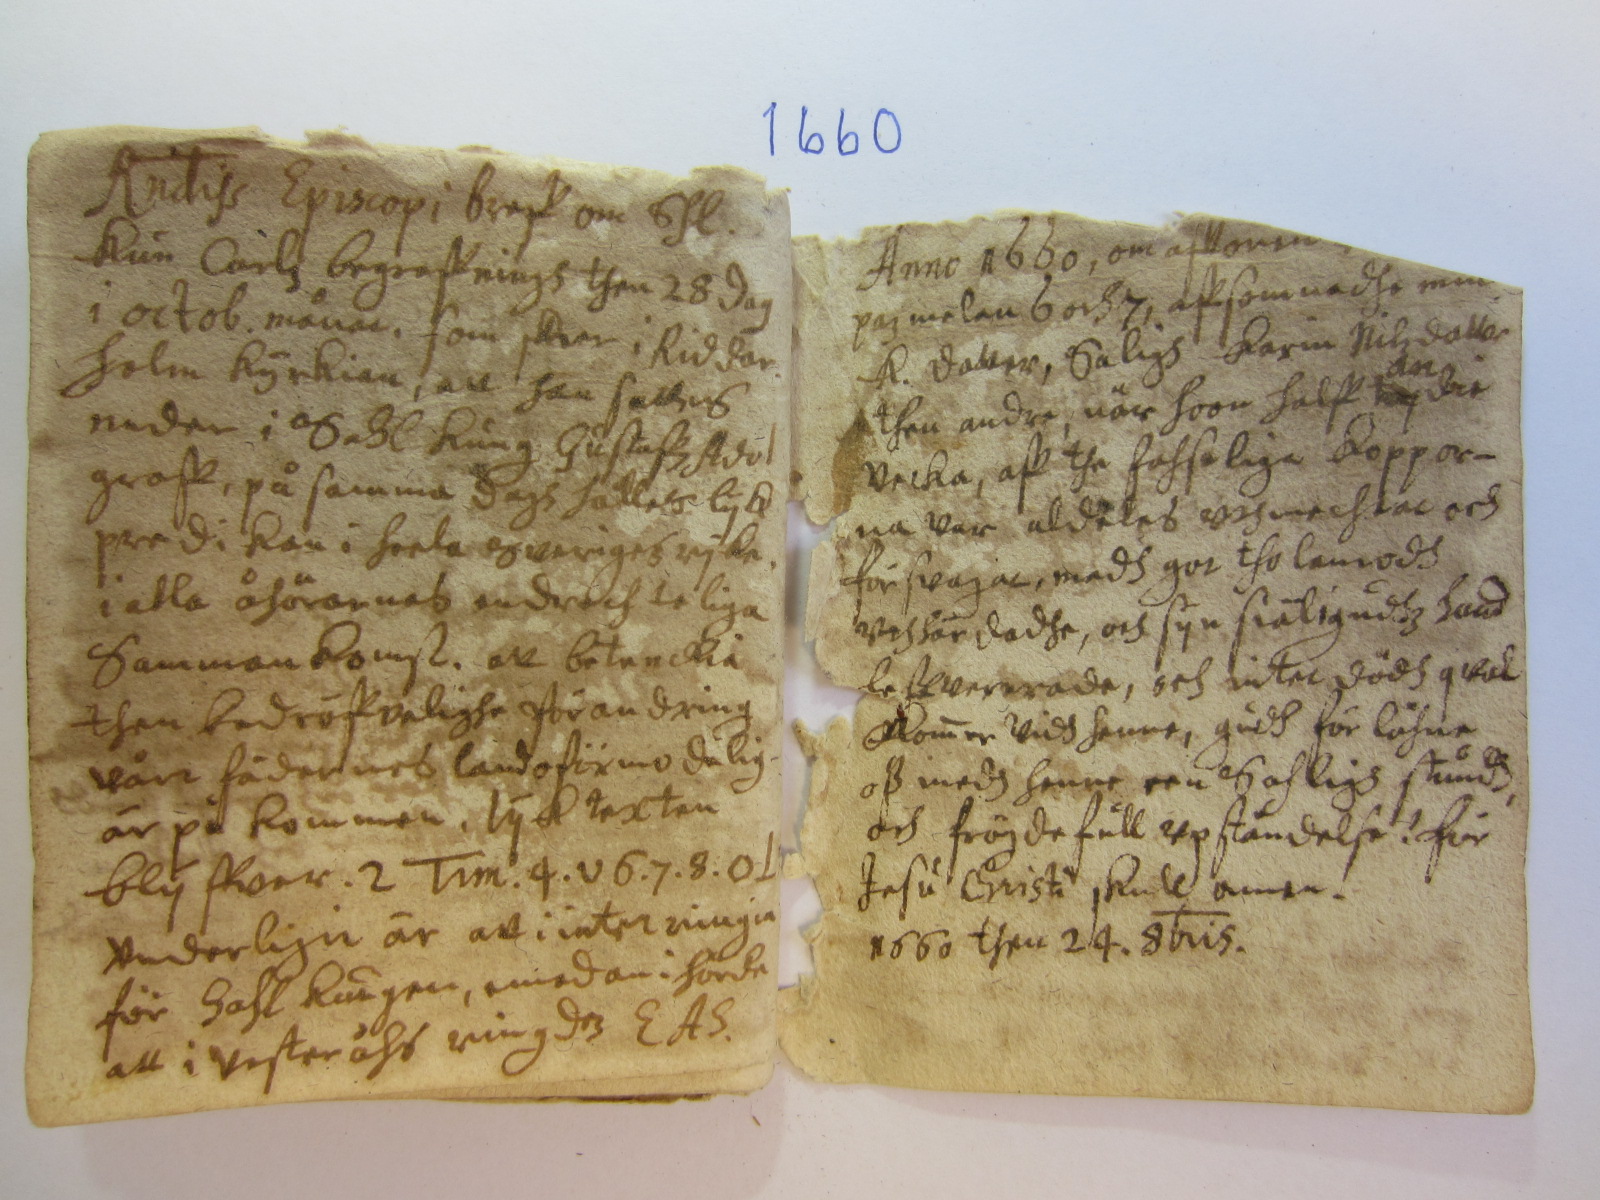 1660
Episcopi breff om Shl.
Kun Carlz begraffnings then 28 dag
i octob. månat. som skeer i Riddar
holm kyrkian, at han sätties
neder i Sahl Kung Gustaff Adol
graff, på samma dagh hålles lijk
predikan i heela Sveriges rijke.
i alla åhörarnas endrechteliga
Sammankomst. at betenckia
then bedröffvelighe förandring
vårt fädernes land oförmodelig
är på kommen. lijk texten
blijffver. 2 Tim. 4. v 6. 7. 8. Ol
vnderligit är at i intet ringia
för Sahl kungen, emedan i hörde
att i vesteråhs ringdes EAS.
Anno 1660, om afftonen
paz melan 6 och 7, affsomnadhe min
k. dotter, Saligh Karin Nilzdotter
then andre, när hoon hafft an die
vecka, aff the fahseliga koppor-
na var aldeles vthmechtat och
försvagat, medh got tholamodh
vthhärdadhe, och syn siäl i gudhz hand
leffvererade, och intet dödh qval
kommer vidh henne, gudh för löhne
oss medh henne een Sahligh stundh,
och fröijdefull vpståndelse! för
Jesu Christi skull amen.
1660 then 24. 8bris.